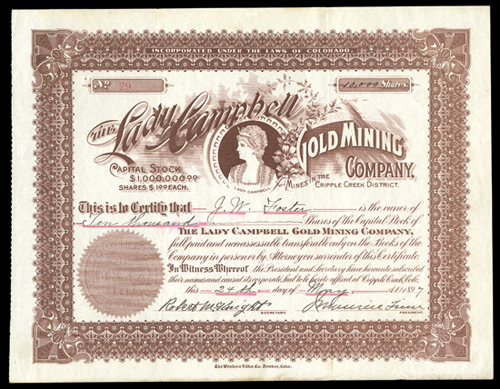 INCORPORATED UNDER THE LAWS OF COLORADO.
No 29
10,000 Shares
THE Lady Campbell
GOLD MINING
COMPANY.
CAPITAL STOCK
$1,000,000.00
SHARES $1.00 EACH.
LADY CAMPBELL
MINES IN THE
CRIPPLE CREEK DISTRICT.
This is to Certify that J. W. Foster is the owner of
Ten thousand Shares of the Capital Stock of
THE LADY CAMPBELL GOLD MINING COMPANY,
full paid and nonassessable transferable only on the Books of the
Company in person or by Attorney on surrender of this Certificate.
In Witness Whereof the President and Secretary have hereunto subscribed
their names and caused its corporate Seal to be hereto affixed at Cripple Creek, Colo.
this 24 day of May A.D. 1897
Robert M.
SECRETARY.
PRESIDENT
The Western Litho. Co. Denver, Colo.